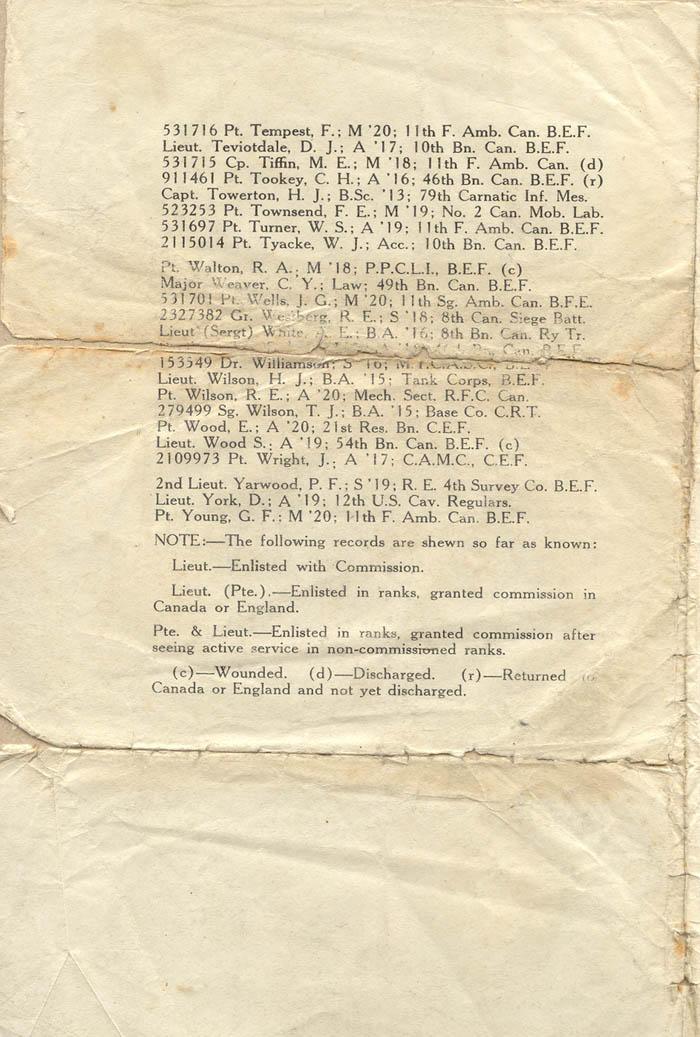 531716 Pt. Tempest, F.; M '20; 11th F. Amb. Can. B.E.F.
Lieut. Teviotdale, D. J.; A '17; 10th Bn. Can. B.E.F.
531715 Cp. Tiffin, M. E.; M '18; 11th F. Amb. Can. (d)
911461 Pt. Tookey, C. H.; A '16; 46th Bn. Can. B.E.F. (r)
Capt. Towerton, H. J.; B.Sc. '13; 79th Carnatic Inf. Mes.
523253 Pt. Townsend, F. E.; M '19; No. 2 Can. Mob. Lab.
531697 Pt. Turner, W. S.; A '19; 11th F. Amb. Can. B.E.F.
2115014 Pt. Tyacke, W. J.; Acc.; 10th Bn. Can. B.E.F.
Pt. Walton, R. A.; M '18; P.P.C.L.I., B.E.F. (c)
Major Weaver, C. Y.; Law; 49th Bn. Can. B.E.F.
531701 Pt. Wells, J. G.; M '20; 11th Sg. Amb. Can. B.F.E.
2327382 Gr. Westberg, R. E.; S '18; 8th Can. Siege Batt.
Lieut (Sergt) White, E.; B.A. '16; 8th Bn. Can. Ry Tr.
Can. B.E.F.
153549 Dr. Williamson; S '16;
Lieut. Wilson, H. J.; B.A. '15; Tank Corps, B.E.F.
Pt. Wilson, R. E.; A '20; Mech. Sect. R.F.C. Can.
279499 Sg. Wilson, T. J.; B.A. '15; Base Co. C.R.T.
Pt. Wood, E.; A '20; 21st Res. Bn. C.E.F.
Lieut. Wood S.; A '19; 54th Bn. Can. B.E.F. (c)
2109973 Pt. Wright, J.; A '17; C.A.M.C., C.E.F.
2nd Lieut. Yarwood, P. F.; S '19; R. E. 4th Survey Co. B.E.F.
Lieut. York, D.; A '19; 12th U.S. Cav. Regulars.
Pt. Young, G. F.; M '20; 11th F. Amb. Can. B.E.F.
NOTE:—The following records are shewn so far as known:
Lieut.—Enlisted with Commission.
Lieut. (Pte.).—Enlisted in ranks, granted commission in
Canada or England.
Pte. & Lieut.—Enlisted in ranks, granted commission after
seeing active service in non-commissioned ranks.
(c)—Wounded. (d)—Discharged. (r)—Returned to
Canada or England and not yet discharged.